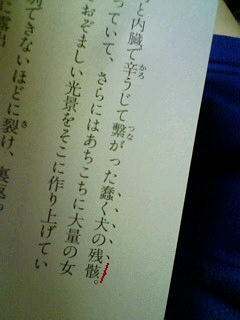 と内臓で辛うじて繋がった蠢く犬の残骸。
っていて、さらにはあちこちに大量の女
おぞましい光景をそこに作り上げてい
別できないほどに裂け、裏返っ